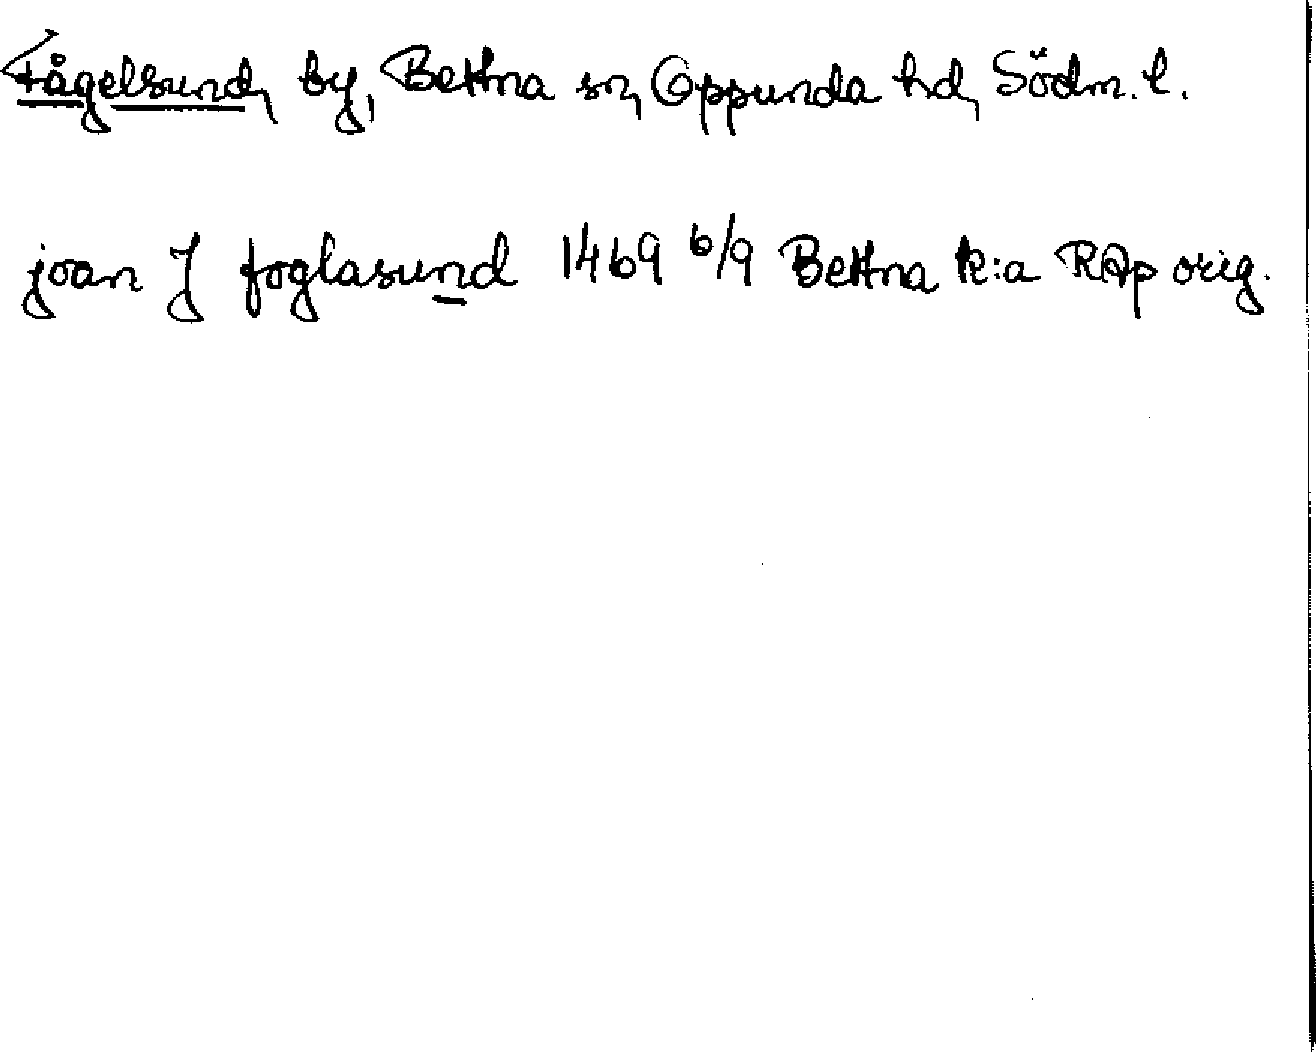 Fågelsund, by, Bettna sn, Oppunda hd, Södm. l.
joan J foglasund 1469 6/9 Bettna k:a RAp orig.